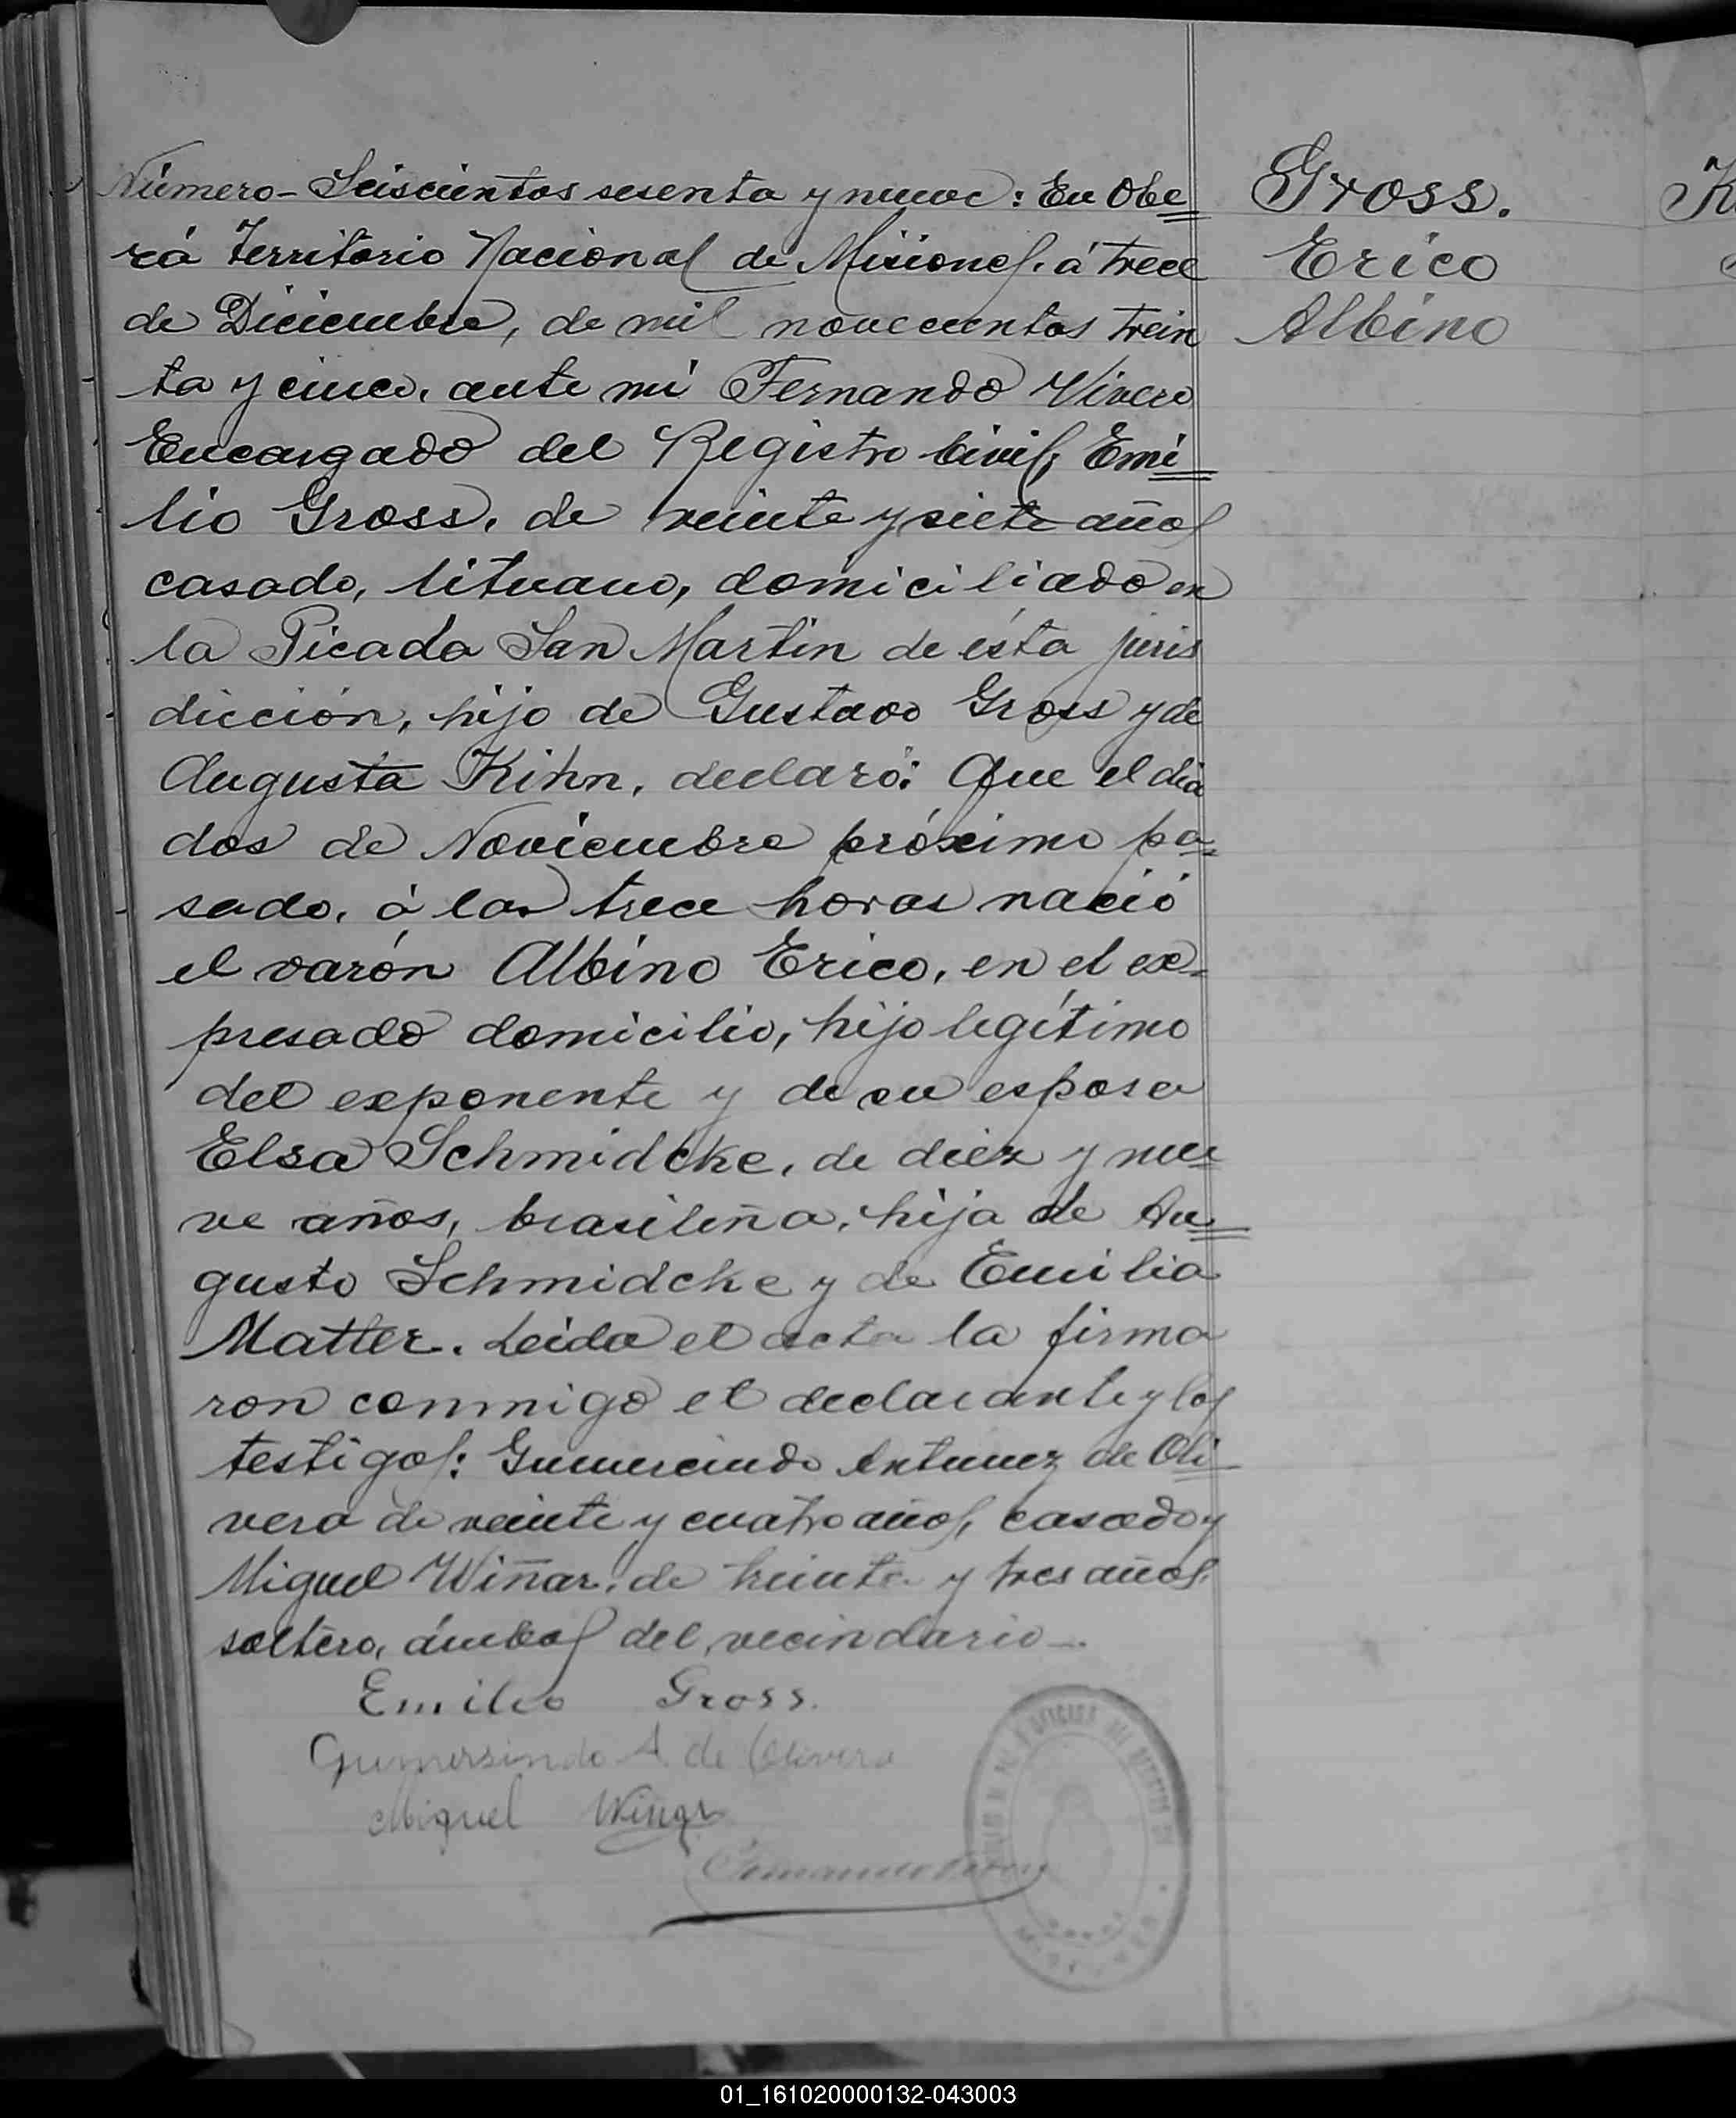 Número - Seiscientos sesenta y nueve: En Obe=
rá Territorio Nacional de Misiones. á trece
de Diciembre, de mil novecientos trein
ta y cinco, ante mi Fernando Vivero
Encargado del Registro Civil; Emi=
lio Gross, de veinte y siete años
casado, lituano, domiciliado en
la Picada San Martin de ésta juris
dicción, hijo de Gustavo Gross y de
Augusta Kihn, declaró: Que el dia
dos de Noviembre próximo pa=
sado, á las trece horas nació
el varón Albino Erico, en el ex=
presado domicilio, hijo legítimo
del exponente y de su esposa
Elsa Schmidcke, de diez y nue=
ve años, brasileña, hija de Au=
gusto Schmidcke y de Emilia
Matter. Leida el acta la firma
ron conmigo el declarante y los
testigos: Gumercindo Antunez de Oli=
vera de veinte y cuatro años, casado y
Miguel Wiñar, de treinta y tres años,
soltero, ámbos del vecindario -.
Emilio Gross.
Gumersindo A. de Olivera
Miguel Wiñar
Fernando Vivero
Gross.
Erico
Albino
01_161020000132-043003